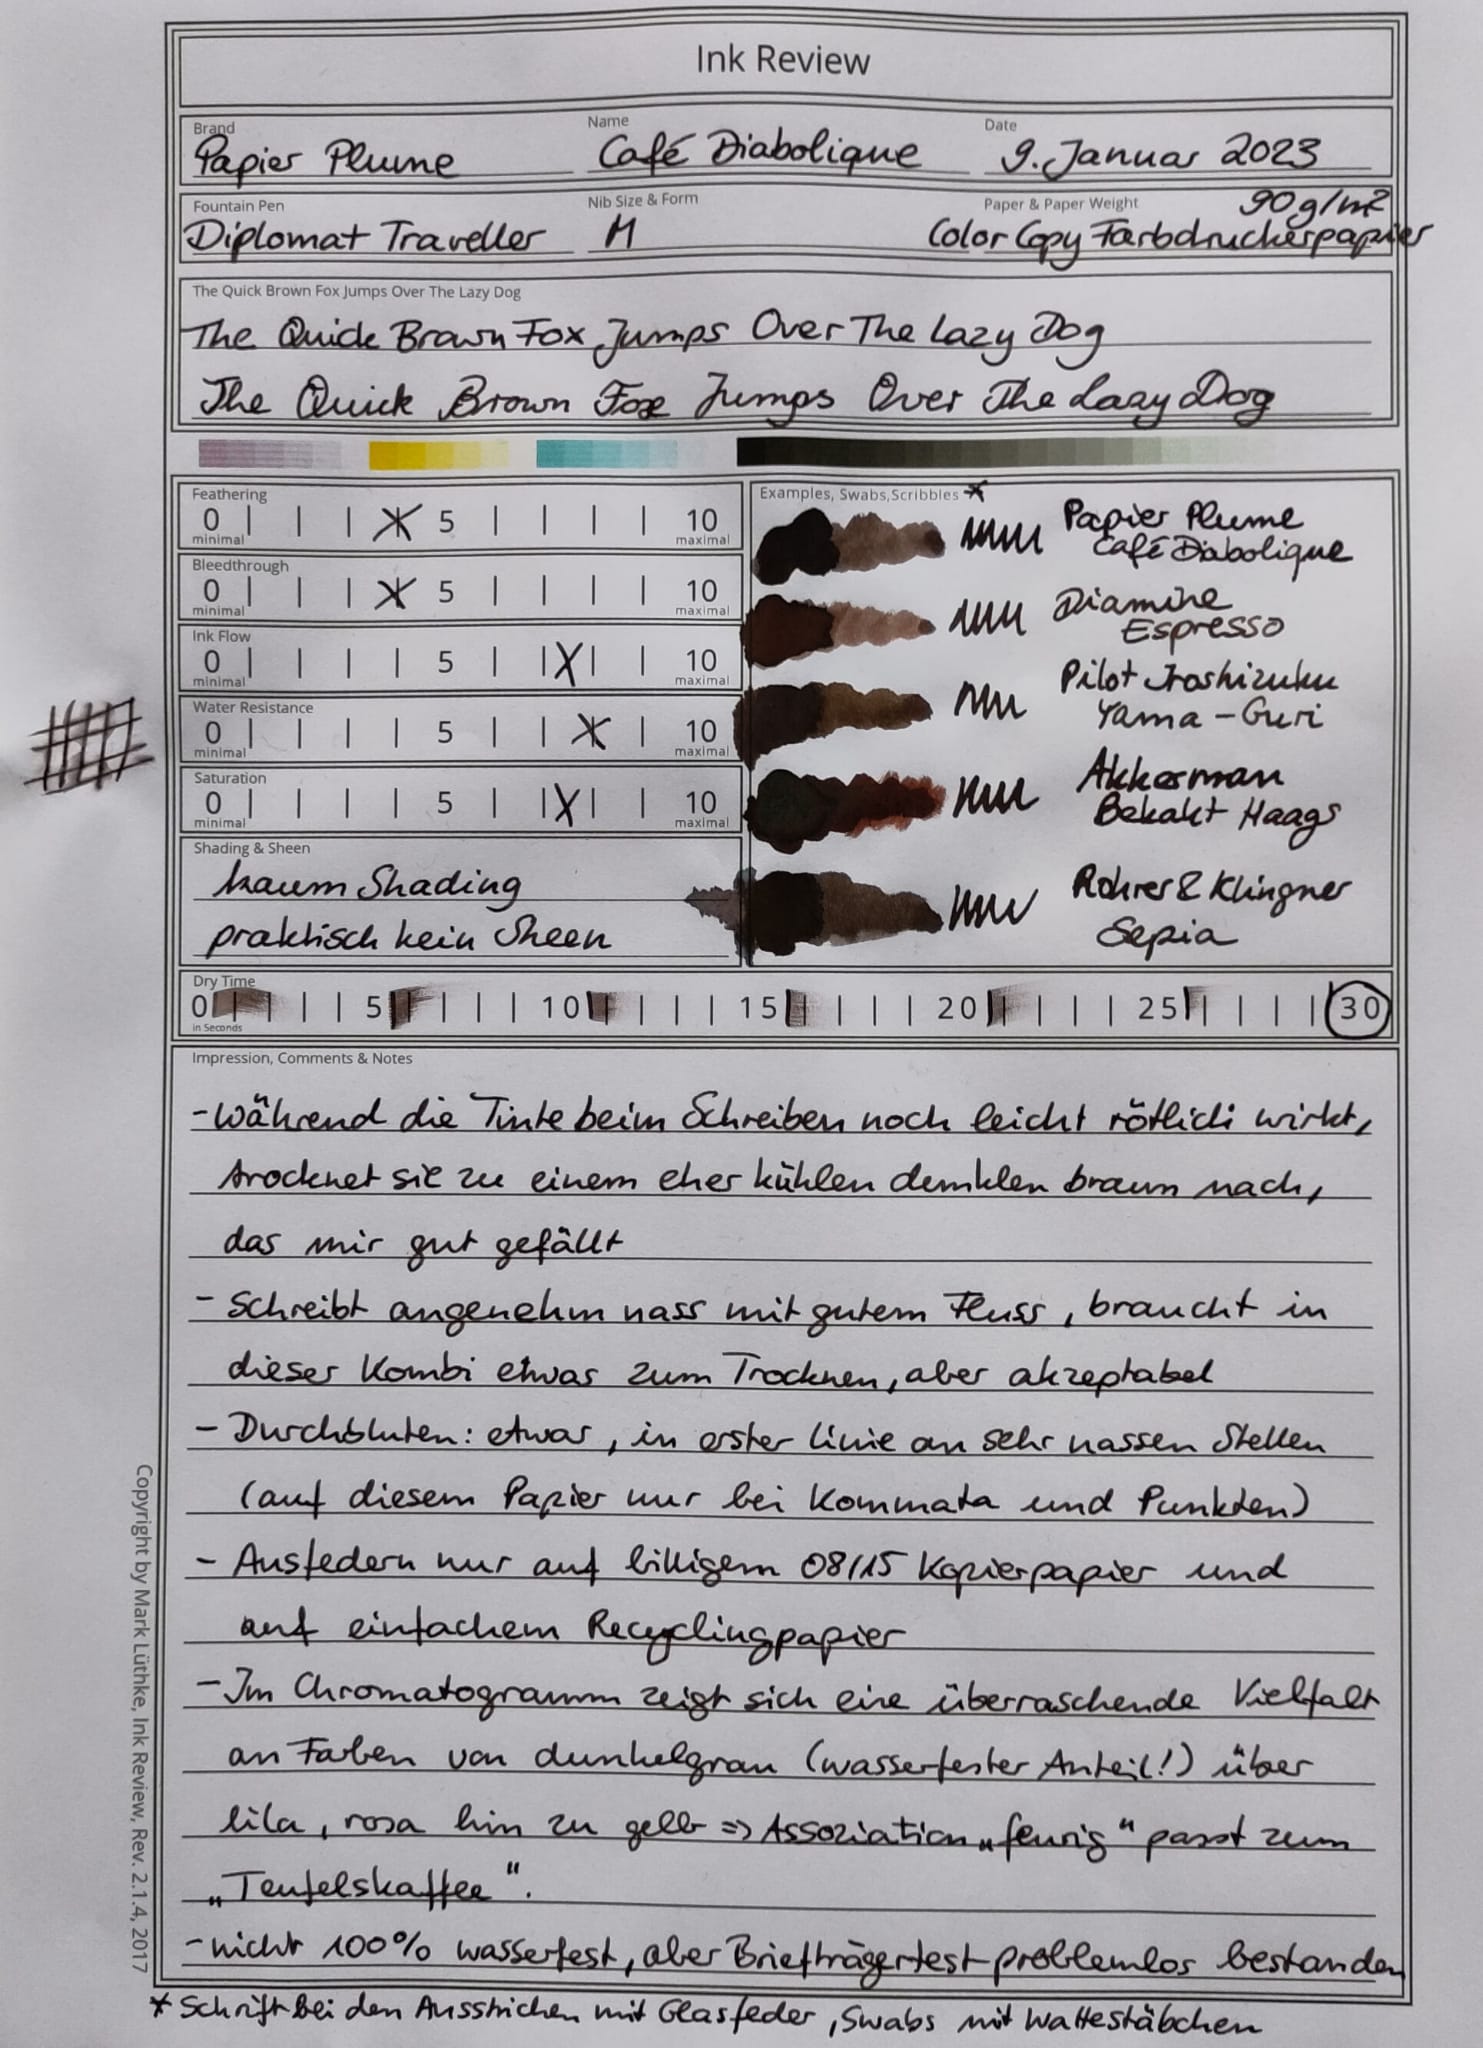 Ink Review
Brand
Papier Plume
Name
Café Diabolique
Date
9. Januar 2023
Fountain Pen
Diplomat Traveller
Nib Size & Form
M
Paper & Paper Weight
90 g/m²
Color Copy Farbdruckerpapier
The Quick Brown Fox Jumps Over The Lazy Dog
The Quick Brown Fox Jumps Over The Lazy Dog
The Quick Brown Fox Jumps Over The Lazy Dog
Feathering
0 5 10
minimal maximal
Bleedthrough
0 5 10
minimal maximal
Ink Flow
0 5 10
minimal maximal
Water Resistance
0 5 10
minimal maximal
Saturation
0 5 10
minimal maximal
Shading & Sheen
kaum Shading
praktisch kein Sheen
Examples, Swabs, Scribbles *
Papier Plume
Café Diabolique
Diamine
Espresso
Pilot Iroshizuku
Yama-Guri
Akkerman
Bekakt Haags
Rohrer & Klingner
Sepia
Dry Time
0 5 10 15 20 25 30
in Seconds
Impression, Comments & Notes
- während die Tinte beim Schreiben noch leicht rötlich wirkt,
trocknet sie zu einem eher kühlen dunklen braun nach,
das mir gut gefällt
- schreibt angenehm nass mit gutem Fluss, braucht in
dieser Kombi etwas zum Trocknen, aber akzeptabel
- Durchbluten: etwas, in erster Linie an sehr nassen Stellen
(auf diesem Papier nur bei Kommata und Punkten)
- Ausfedern nur auf billigem 08/15 Kopierpapier und
auf einfachem Recyclingpapier
- Im Chromatogramm zeigt sich eine überraschende Vielfalt
an Farben von dunkelgrau (wasserfester Anteil!) über
lila, rosa hin zu gelb => Assoziation „feurig“ passt zum
„Teufelskaffee“.
- nicht 100% wasserfest, aber Briefträgertest problemlos bestanden
* Schrift bei den Ausstrichen mit Glasfeder, Swabs mit Wattestäbchen
Copyright by Mark Lüthke, Ink Review, Rev. 2.1.4, 2017